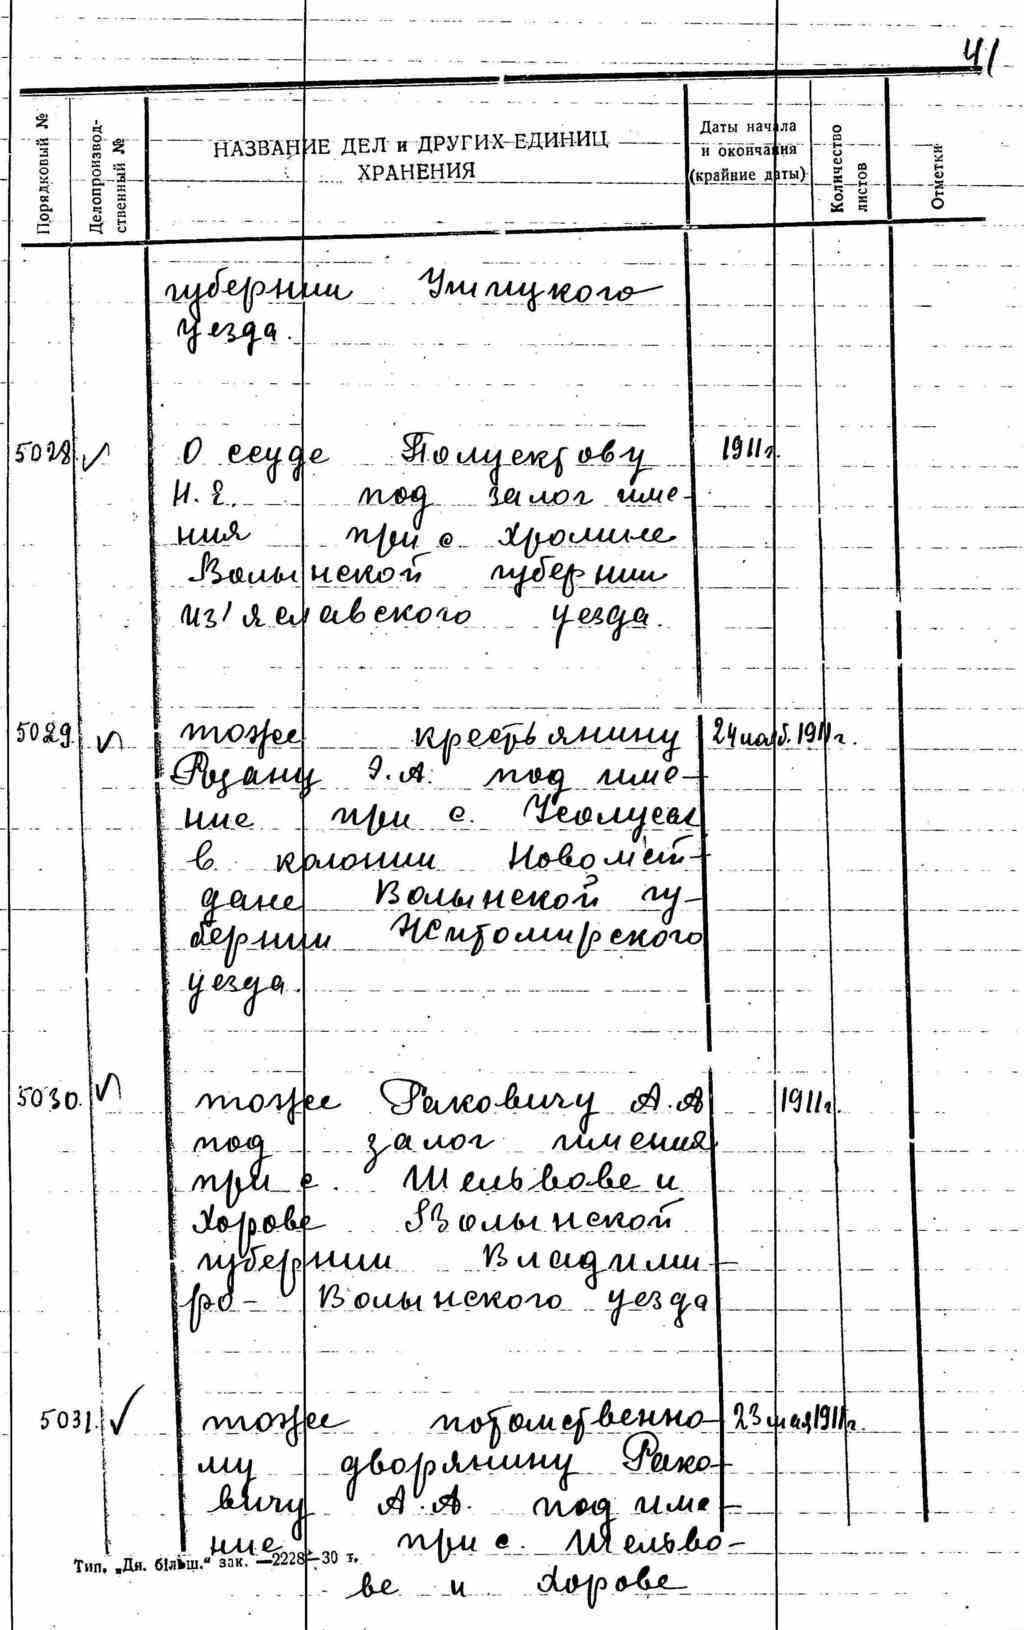 41
Порядковый №
Делопроизвод-
ственный №
НАЗВАНИЕ ДЕЛ и ДРУГИХ ЕДИНИЦ
ХРАНЕНИЯ
Даты начала
и окончания
(крайние даты)
Количество
листов
Отметки
губернии
уезда.
5028. О ссуде Полуектову 1911г.
Н.Е. под залог име-
ния при с. Хролине
Волынской губернии
из'яславского уезда.
5029. тоже крестьянину 24 нояб. 1911г.
под име-
ние при с.
в колонии
дане Волынской гу-
бернии Житомирского
уезда.
5030. тоже Раковичу А.А 1911г.
под залог имения
при с. Шельвове и
Хорове Волынской
губернии Владими-
ро- Волынского уезда
5031. тоже потомственно- 23 мая 1911г.
му дворянину Рако-
вичу А.А. под име-
ние при с. Шельво-
ве и Хорове
Тип. „Дн. більш." зак. —2228—30 т.